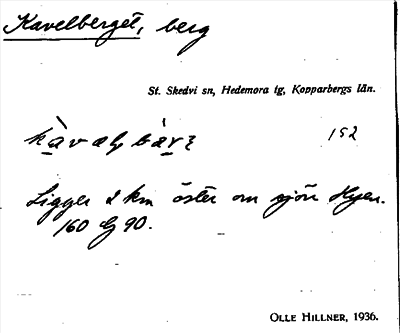 Kavelberget, berg
St. Skedvi sn, Hedemora tg, Kopparbergs län.
152
Ligger 2 km öster om sjön Hyen.
160 Ef 90.
OLLE HILLNER, 1936.